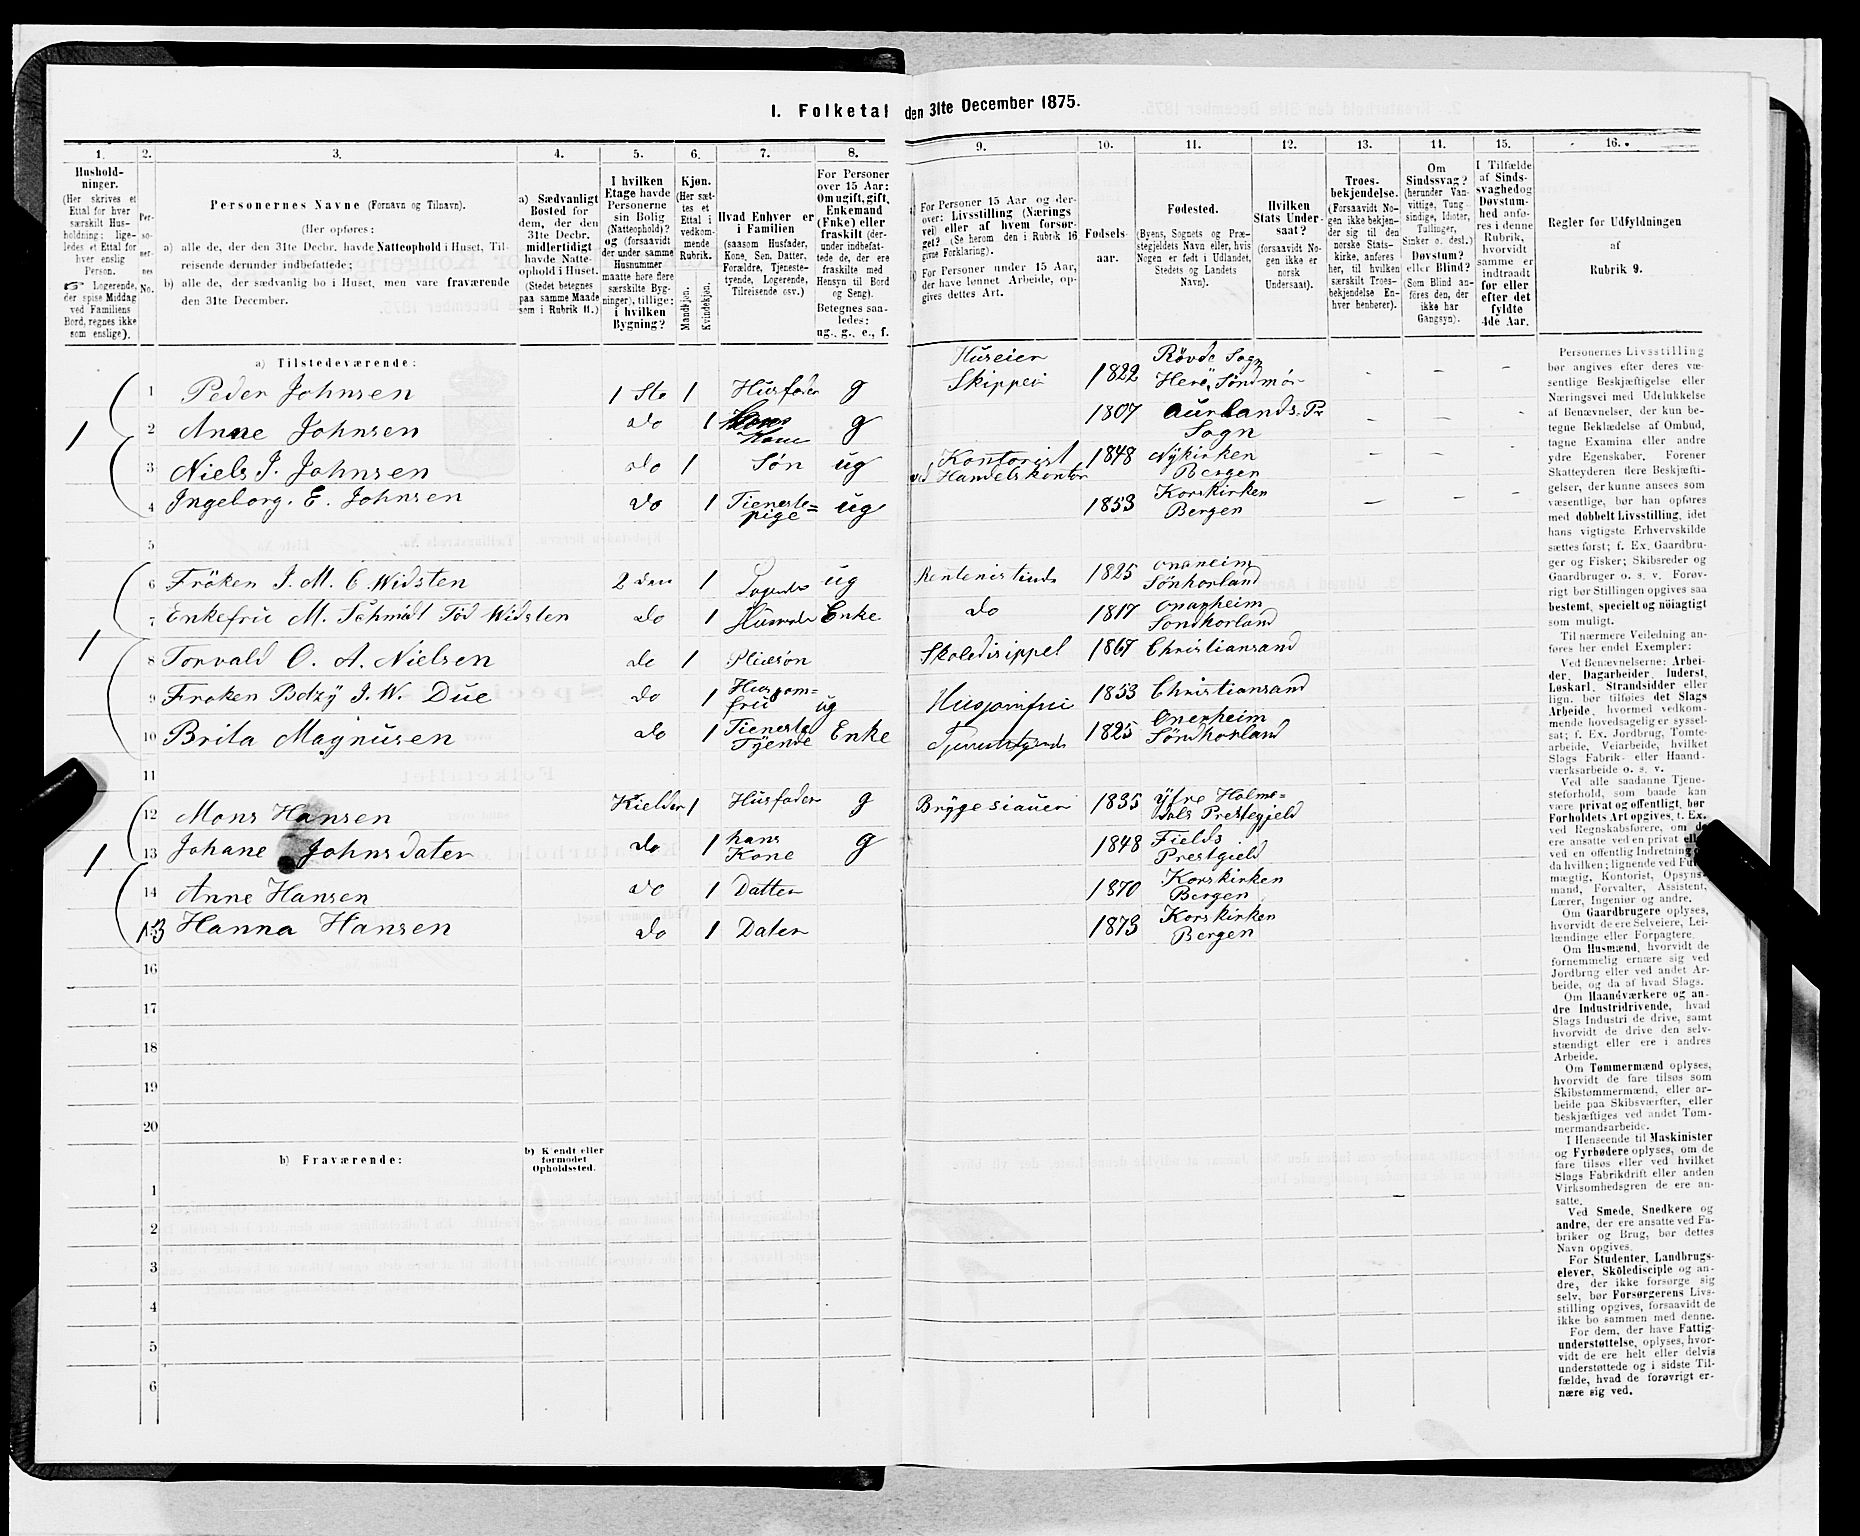 1. Folketal den 31te December 1875.
1. 2. 3. 4. 5. 6. 7. 8. 9. 10. 11. 12. 13. 11. 15. 16.
Hushold-
ninger.
(Her skrives et
Ettal for hver
særskilt Hus-
holdning; lige-
ledes et Ettal for
hver enslig
Person.
☞ Logerende,
der spise Middag
ved Familiens
Bord, regnes ikke
som enslige).
Per-
so-
ner-
nes
No.
Personernes Navne (Fornavn og Tilnavn).
(Her opføres:
a) alle de, der den 31te Decbr. havde Natteophold i Huset, Til-
reisende derunder indbefattede;
b) alle de, der sædvanlig bo i Huset, men vare fraværende
den 31te December.
a) Sædvanligt
Bosted for
dem, der den
31te Decbr.
midlertidigt
havde Natte-
ophold i Huset.
(Stedet betegnes
paa samme Maade
som i Rubrik 11.)
I hvilken
Etage havde
Personerne
sin Bolig
(Natteophold)?
og (forsaavidt
der under samme
Husnummer
maatte høre flere
særskilte Byg-
ninger), tillige:
i hvilken
Bygning?
Kjøn.
(Her sæt-
tes et
Ettal i
vedkom-
mende
Rubrik.
Mandkjøn.
Kvindekjøn.
Hvad Enhver er
i Familien
(saasom Husfader,
Kone, Søn, Datter,
Forældre, Tjeneste-
tyende, Logerende,
Tilreisende osv.)
For Personer
over 15 Aar:
Om ugift, gift,
Enkemand
(Enke) eller
fraskilt (der-
under indbefat-
tede de, der ere
fraskilte med
Hensyn til Bord
og Seng).
Betegnes saa-
ledes:
ug., g., e., f.
For Personer 15 Aar og der-
over: Livsstilling (Nærings
vei) eller af hvem forsør-
get? (Se herom den i Rubrik 16
givne Forklaring).
For Personer under 15 Aar,
der have lønnet Arbeide, op-
gives dettes Art.
Fødsels-
aar.
Fødested.
(Byens, Sognets og Præ-
stegjeldets Navn eller, hvis
Nogen er født i Udlandet,
Stedets og Landets
Navn).
Hvilken
Stats Under-
saat?
(forsaavidt No-
gen ikke er
norsk
Undersaat).
Troes-
bekjendelse.
(Forsaavidt No-
gen ikke bekjen-
der sig til den
norske Stats-
kirke, anføres
her, til hvilken
særskilt Troes-
bekjendelse En-
hver henhører).
Om
Sindssvag?
(herunder Van-
vittige, Tung-
sindige, Idioter,
Tullinger,
Sinker o. desl.)
Døvstum?
eller Blind?
(Som Blind an-
føres den, der
ikke har
Gangsyn).
I Tilfælde
af Sinds-
svaghed og
Døvstum-
hed anfø-
res i denne
Rubrik,
hvorvidt
samme er
indtraadt
før eller
efter det
fyldte
4de Aar.
Regler for Udfyldningen
af
Rubrik 9.
a) Tilstedeværende:
1 Peder Johnsen 1 Sto 1 Husfader g Huseier Skipper 1822 Røvde Sogn Herö, Söndmör
1
2 Anne Johnsen do 1 Kone g 1807 Aurlands Pr Sogn
3 Niels J. Johnsen do 1 Søn ug Kontorist ved Handelskontor 1848 Nykirken Bergen
4 Ingeborg. E. Johnsen do 1 Tieneste= pige ug 1853 Korskirken Bergen
5
6 Fröken J. M. C. Widsten 2 den 1 ug 1825 Sönhorland
7 Enkefrue M. Schmidt Föd Widsten do 1 Enke do 1817 Söndhorland
1
8 Torvald O. A. Nielsen do 1 Pleiesøn Skoledisippel 1867 Christiansand
9 Frøken Botzy J. W. Due do 1 Husjom= fru ug Husjomfru 1853 Christiansand
10 Brita Magnusen do 1 Tieneste Tyende Enke 1825 Söndhorland
11
12 Mons Hansen Kielder 1 Husfader g Bryggesiauer 1835 Ytre Holme= dals Prestegjeld
13 Johane Johnsdater do 1 hans Kone g 1848 Fields Prestgield
1
14 Anne Hansen do 1 Datter 1870 Korskirken Bergen
13 Hanna Hansen do 1 Dater 1873 Korskirken Bergen
16
17
18
19
20
b) Fraværende:
b) Kjendt eller
formodet
Opholdssted.
1
2
3
4
5
6
Personernes Livsstilling
bør angives efter deres væ-
sentlige Beskjæftigelse eller
Næringsvei med Udelukkelse
af Benævnelser, der kun be-
tegne Beklædelse af Ombud,
tagne Examina eller andre
ydre Egenskaber. Forener
Skatteyderen flere Beskjæfti-
gelser, der kunne ansees som
væsentlige, bør han opføres
med dobbelt Livsstilling, idet
hans vigtigste Erhvervskilde
sættes først; f. Ex. Gaardbru-
ger og Fisker; Skibsreder og
Gaardbruger o. s. v. Forøv-
rigt bør Stillingen opgives saa
bestemt, specielt og nöiagtigt
som muligt.
Til nærmere Veiledning an-
føres her endel Exempler:
Ved Benævnelserne: Arbei-
der, Dagarbeider, Inderst,
Løskarl, Strandsidder eller
lign. bør tilføies det Slags
Arbeide, hvormed vedkom-
mende hovedsagelig er syssel-
sat; f. Ex. Jordbrug, Tomte-
arbeide, Veiarbeide, hvilket
Slags Fabrik- eller Haand-
værksarbeide o. s. v.
Ved alle saadanne Tjene-
steforhold, som baade kan
være privat og offentligt, bør
Forholdets Art opgives, t. Ex.
ved Regnskabsførere, om de
ere ansatte ved en privat eller
ved en offentlig Indretning og
da hvilken; lignende ved Fuld-
mægtig, Kontorist, Opsyns-
mand, Forvalter, Assistent,
Lærer, Ingeniør og andre.
Om Gaardbrugere oplyses,
hvorvidt de ere Selveiere, Lei-
lændinge eller Forpagtere.
Om Husmænd, hvorvidt de
fornemmelig ernære sig ved
Jordbrug eller ved andet Ar-
beide, og da af hvad Slags.
Om Haandværkere og an-
dre Industridrivende, hvad
Slags Industri de drive, samt
hvorvidt de drive den selv-
stændigt eller ere i andres
Arbeide.
Om Tømmermænd oplyses,
hvorvidt de fare tilsøs som
Skibstømmermænd, eller ar-
beide paa Skibsværfter, eller
beskjæftiges ved andet Tøm-
mermandsarbeide.
I Henseende til Maskinister
og Fyrbødere oplyses, om de
fare tilsøs eller ved hvilket
Slags Fabrikdrift eller anden
Virksomhedsgren de ere an-
satte.
Ved Smede, Snedkere og
andre, der ere ansatte ved Fa-
briker og Brug, bør dettes
Navn opgives.
For Studenter, Landbrugs-
elever, Skoledisciple og an-
dre, der ikke forsørge sig
selv, bør Forsørgerens Livs-
stilling opgives, forsaavidt de
ikke bo sammen med denne.
For dem, der have Fattig-
understøttelse, oplyses, hvor-
vidt de ere helt eller delvis
understøttede og i sidste Til-
fælde, hvad de forøvrigt er-
nære sig ved.